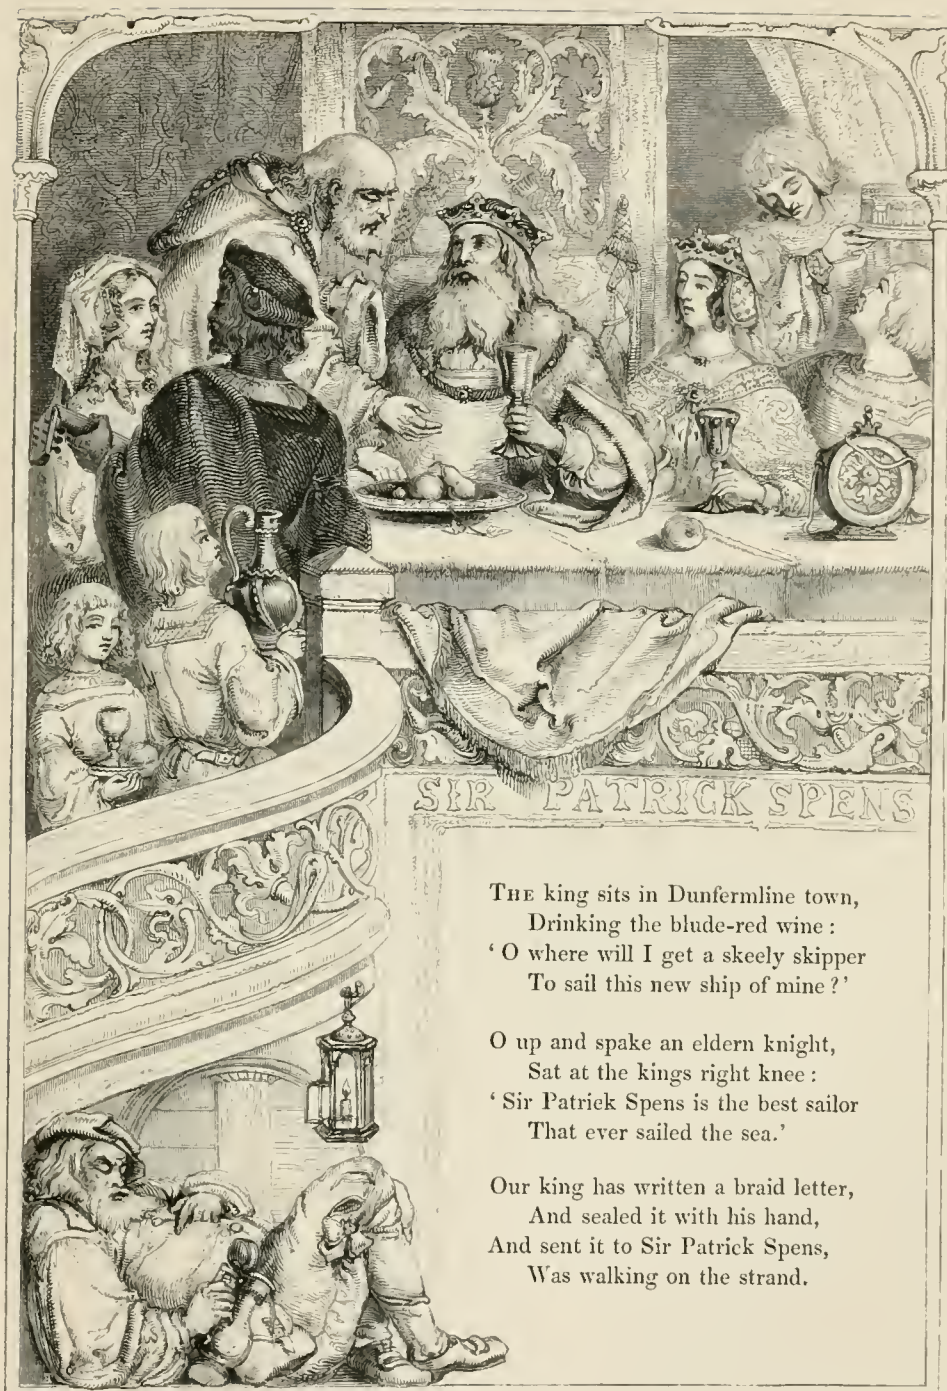 SIR PATRICK SPENS
THE king sits in Dunfermline town,
Drinking the blude-red wine :
‘ O where will I get a skeely skipper
To sail this new ship of mine ?’
O up and spake an eldern knight,
Sat at the kings right knee :
‘ Sir Patrick Spens is the best sailor
That ever sailed the sea.’
Our king has written a braid letter,
And sealed it with his hand,
And sent it to Sir Patrick Spens,
Was walking on the strand.